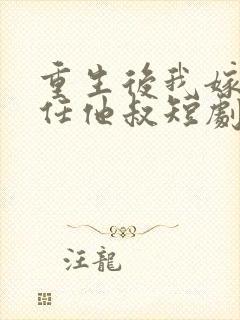 重生後我嫁
任他叔短劇
汪龍